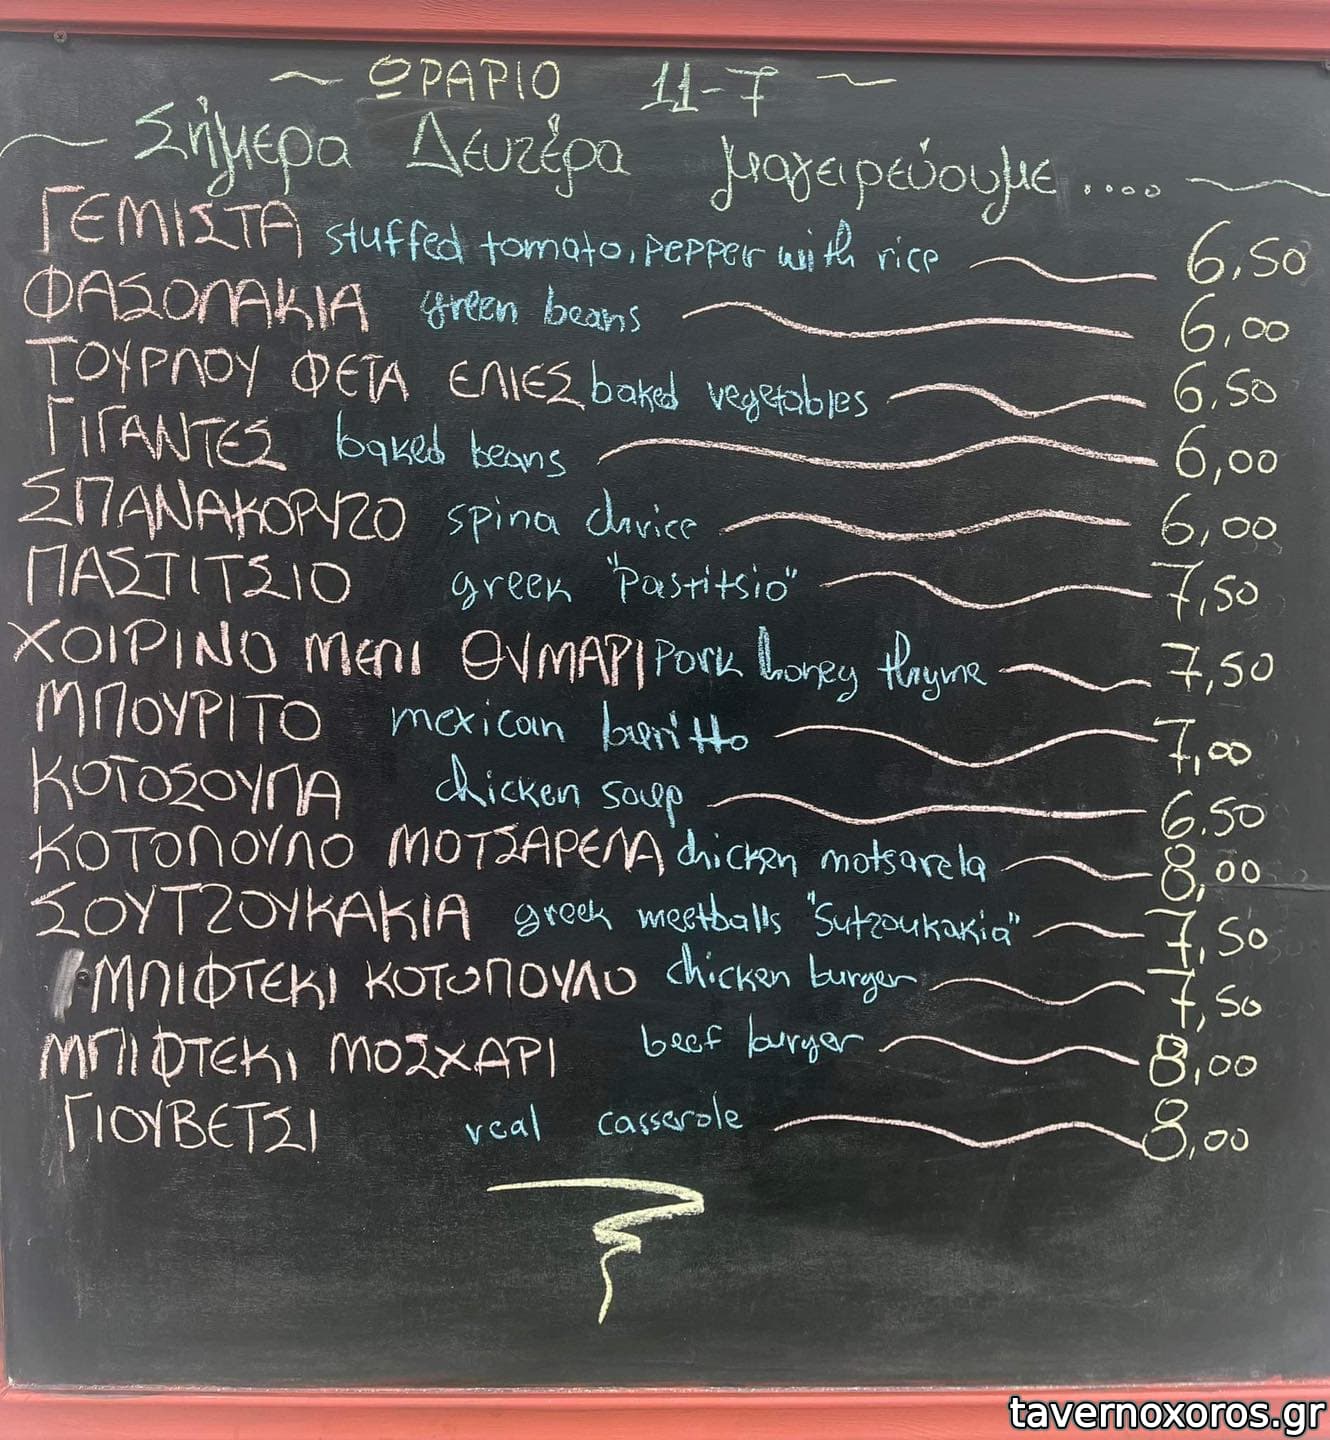 ΩΡΑΡΙΟ 11-7
Σήμερα Δευτέρα μαγειρεύουμε....
ΓΕΜΙΣΤΑ stuffed tomato, pepper with rice 6,50
ΦΑΣΟΛΑΚΙΑ green beans 6,00
ΤΟΥΡΛΟΥ ΦΕΤΑ ΕΛΙΕΣ baked vegetables 6.50
ΓΙΓΑΝΤΕΣ baked beans 6,00
ΣΠΑΝΑΚΟΡΥΖΟ spina chrice 6,00
ΠΑΣΤΙΤΣΙΟ greek "Pastitsio" 7,50
ΧΟΙΡΙΝΟ ΜΕΛΙ ΘΥΜΑΡΙ Pork honey thyme 7,50
ΜΠΟΥΡΙΤΟ mexican burritto 7,00
ΚΟΤΟΣΟΥΠΑ chicken soup 6.50
ΚΟΤΟΠΟΥΛΟ ΜΟΤΣΑΡΕΛΑ chicken motsarela 8,00
ΣΟΥΤΖΟΥΚΑΚΙΑ greek meetballs "Sutzoukakia" 7,50
ΜΠΙΦΤΕΚΙ ΚΟΤΟΠΟΥΛΟ chicken burger 7,50
ΜΠΙΦΤΕΚΙ ΜΟΣΧΑΡΙ beef burger 8,00
ΓΙΟΥΒΕΤΣΙ veal casserole 8,00
tavernoxoros.gr